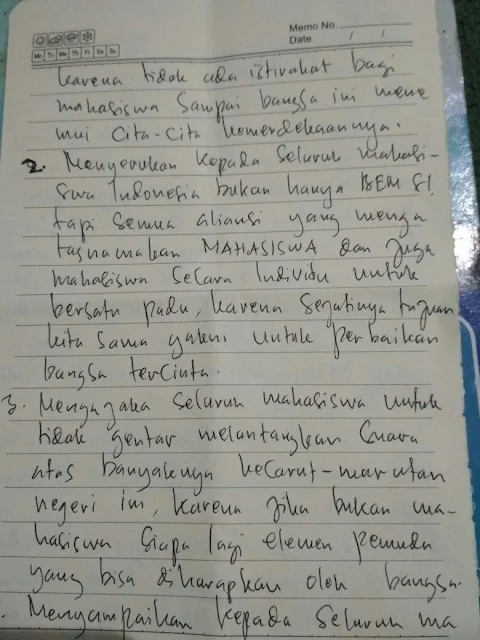 Memo No.
Date / /
Mo Tu We Th Fr Sa Su
karena tidak ada istirahat bagi
mahasiswa sampai bangsa ini mene
mui cita-cita kemerdekaannya.
2. Menyerukan kepada seluruh mahasi-
swa Indonesia bukan hanya BEM SI
tapi semua aliansi yang menga
tasnamakan MAHASISWA dan juga
mahasiswa secara Individu untuk
bersatu padu, karena sejatinya tujuan
kita sama yakni untuk perbaikan
bangsa tercinta.
3. Mengajak seluruh mahasiswa untuk
tidak gentar melantangkan suara
atas banyaknya kecarut-marutan
negeri ini, karena jika bukan ma-
hasiswa siapa lagi elemen pemuda
yang bisa diharapkan oleh bangsa.
Menyampaikan kepada seluruh ma